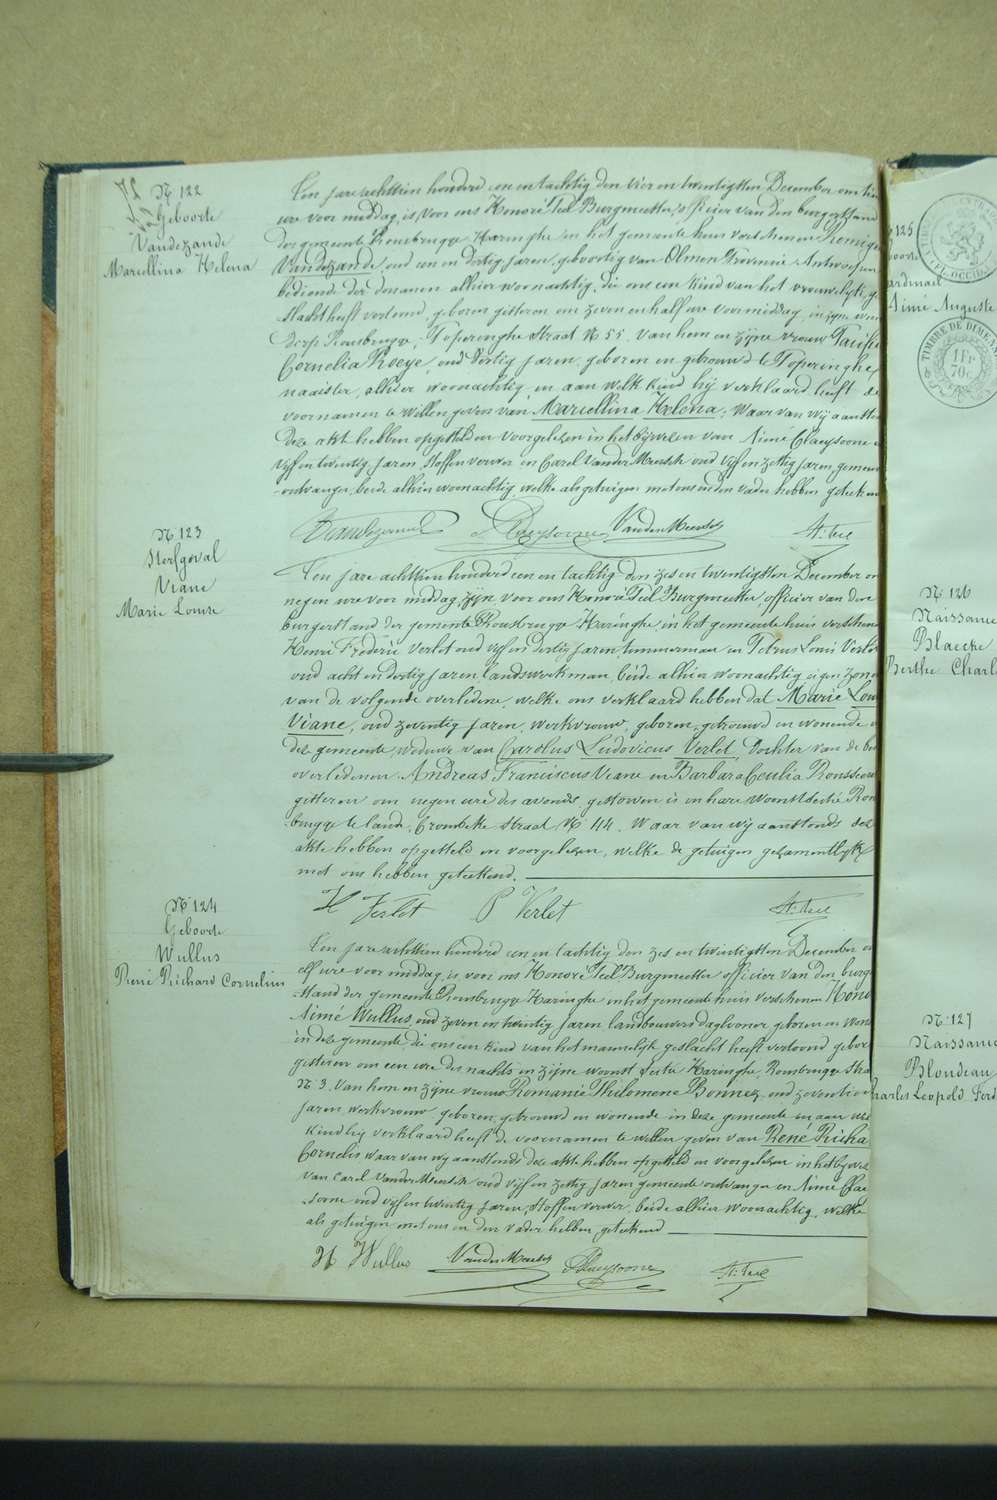 N° 122
Geboorte
Vandezande
Marcellina Helena
Een jare achttien honderd een en tachtig den vier en twintigsten December om tien
ure voor middag, is voor ons Honoré Teel Burgmeester, officier van den burgerstand
der gemeente Rousbrugge Haringhe in het gemeente huis verschenen Remig
Vandezande, oud een en dertig jaren, geboortig van Olmen Provincie Antwerpen
bediende der douanen alhier woonachtig, die ons een kind van het vrouwelijk ge
slacht heeft vertoond, geboren gisteren om zeven en half ure voormiddag, in zijne woon
dorp Rousbrugge, Poperinghe straat N° 55. van hem en zijne vrouw
Cornelia Roeye, oud dertig jaren, geboren en getrouwd te Poperinghe,
naaister, alhier woonachtig, en aan welk kind hij verklaard heeft de
voornamen te willen geven van Marcellina Helena, Waar van wij aanston
deze akt hebben opgesteld en voorgelezen in het bijwezen van Aimé Claeysoone
vijf en twintig jaren, stoffen verwer en Carel Vander Meersch oud vijf en zestig jaren, gemeen
ontvanger, beide alhier woonachtig, welke als getuigen met ons en den vader hebben geteekend
Vandezande A Claeysoone VanderMeersch H. Teel
N° 123
Sterfgeval
Viane
Marie Louise
Een jare achttien honderd een en tachtig den zes en twintigsten December om
negen ure voor middag, zijn voor ons Honoré Teel Burgmeester, officier van den
burgerstand der gemeente Rousbrugge Haringhe, in het gemeente huis verschenen
Henri Frederic Verlet oud vijf en dertig jaren timmerman en Petrus Louis Verlet
oud acht en dertig jaren, landswerkman, beide alhier woonachtig eigen zonen
van de volgende overledene, welke ons verklaard hebben dat Marie Lou
Viane, oud zeventig jaren, werkvrouw, geboren, getrouwd en wonende
deze gemeente, weduwe van Carolus Ludovicus Verlet, Dochter van de be
overledenen Andreas Franciscus Viane en Barbara Cecilia Rousseeu
gisteren om negen ure des avonds, gestorven is in hare woonst sectie Rou
brugge te lande, Crombeke straat N° 44. Waar van wij aanstonds deze
akte hebben opgesteld en voorgelezen, welke de getuigen gezamentlyk
met ons hebben geteekend.
H Verlet P Verlet H. Teel
N° 124
Geboorte
Wullus
René Richard Cornelius
Een jare achttien honderd een en tachtig den zes en twintigsten December om
elf ure voor middag, is voor ons Honoré Teel Burgmeester officier van den burge
stand der gemeente Rousbrugge Haringhe in het gemeente huis verschenen Hono
Aimé Wullus, oud zeven en twintig jaren landbouwers daglooner geboren en won
in deze gemeente, die ons een kind van het mannelyk geslacht heeft vertoond gebor
gisteren om een ure des nachts in zijne woonst sectie Haringhe, Rousbrugge stra
N° 3. Van hem en zijne vrouw Romanie Philomene Bonnez oud zeven
jaren werkvrouw geboren, getrouwd en wonende in deze gemeente en aan wel
kind hij verklaard heeft de voornamen te willen geven van René Richa
Cornelis waar van wij aanstonds deze akt hebben opgesteld en voorgelezen in het bijwe
van Carel Vander Meersch oud vijf en zestig jaren gemeente ontvanger en Aimé Clae
soone oud vijf en twintig jaren, stoffen verwer, beide alhier woonachtig, welke
als getuigen met ons en den vader hebben geteekend
H Wullus VanderMeersch A Claeysoone H. Teel
125
Aimé Auguste
TIMBRE DE DIMEN
1 Fr
70 c
N° 126
Naissance
Blaecke
Berthe Charl
N° 127
Naissance
Blondeau
Charles Leopold Ferd